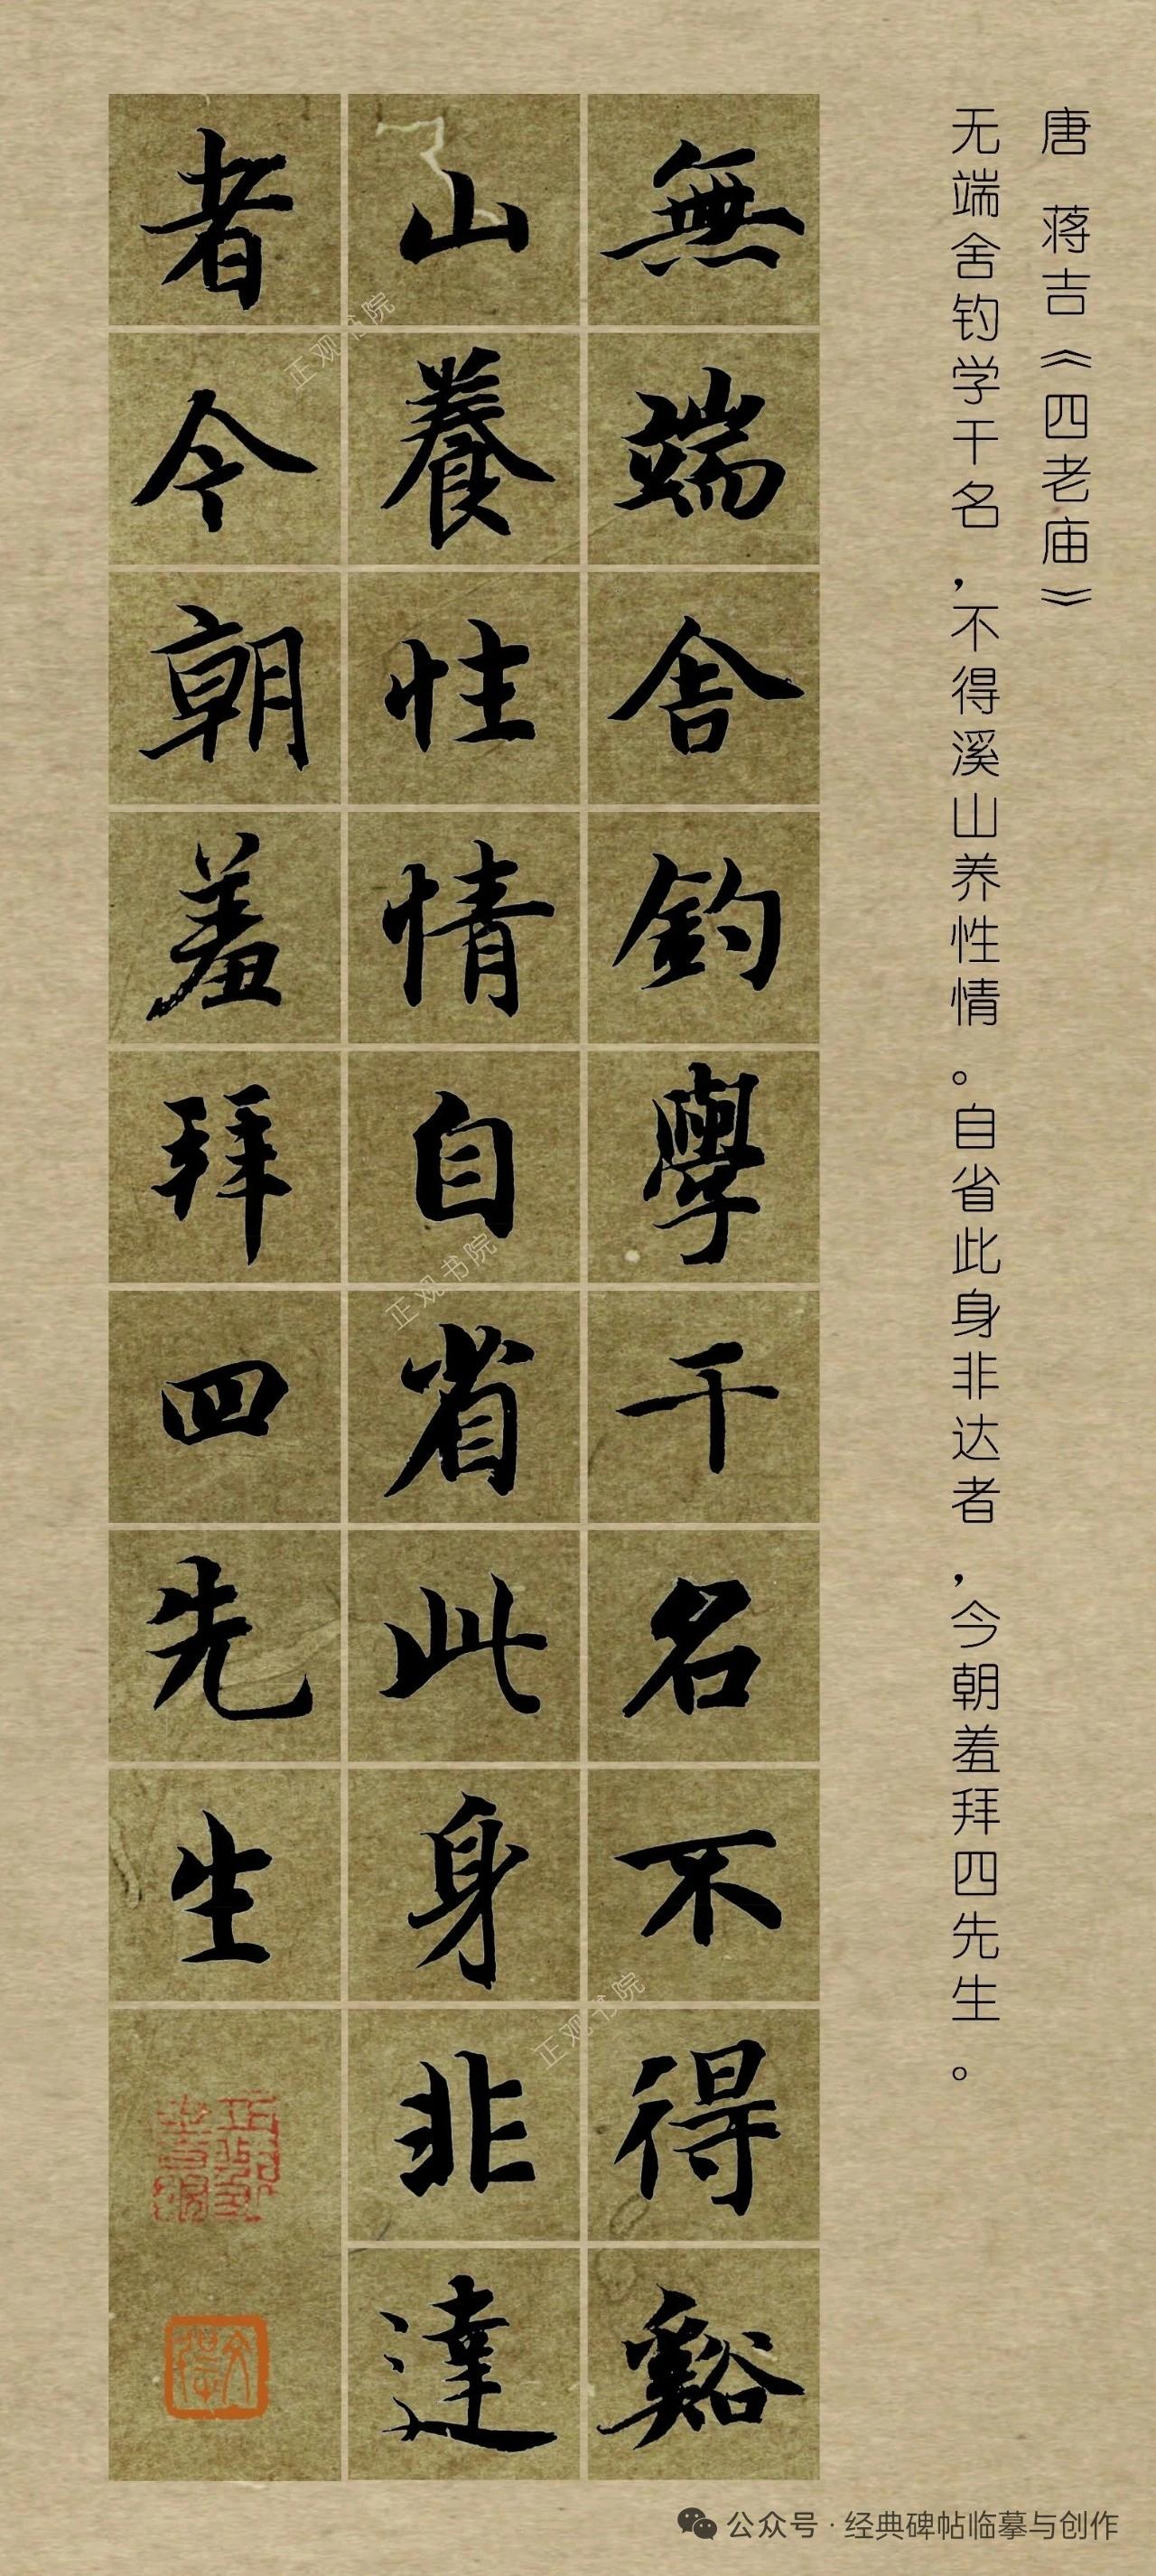 唐 蒋吉《四老庙》
无端舍钓学干名，不得溪山养性情。自省此身非达者，今朝羞拜四先生。
無端舍釣學干名不得谿
山養性情自省此身非達
者今朝羞拜四先生
正观书院
正观书院
正观书院
公众号·经典碑帖临摹与创作